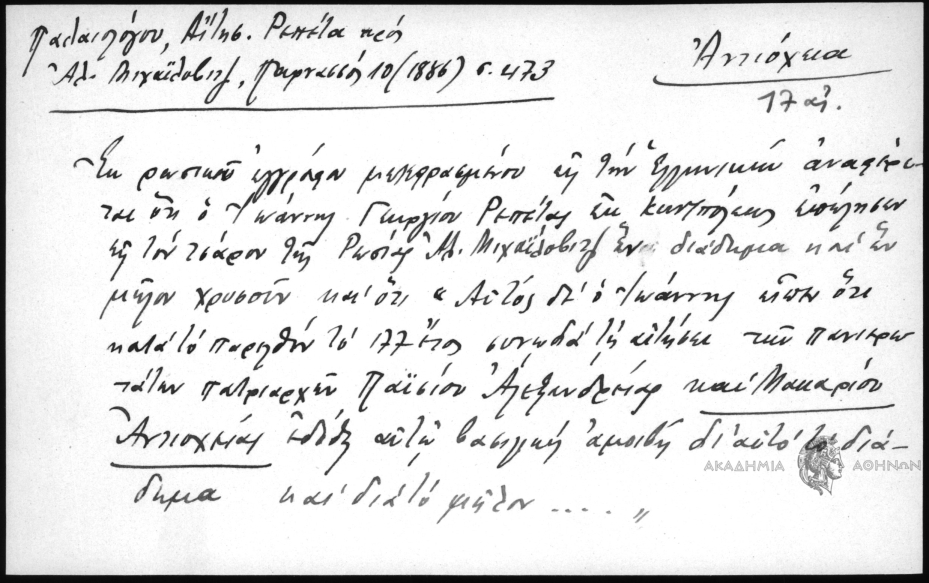 Παλαιολόγου, Αἴτησ. Ρεπέτα πρός
Ἀλ. Μιχαΐλοβιτζ, Παρνασσός 10 (1886) σ. 473
Ἀντιόχεια
17 αἰ.
Ἐκ ρωσικοῦ ἐγγράφου μεταφρασμένου εἰς τήν Ἑλληνικήν ἀναφέρε-
ται ὅτι ὁ Ἰωάννης Γεωργίου Ρεπέτας ἐκ Κων/πόλεως ἐπώλησεν
εἰς τόν τσάρον τῆς Ρωσίας Ἀλ. Μιχαΐλοβιτζ ἕν διάδημα καί ἕν
μῆλον χρυσοῦν καί ὅτι « Αὐτός δέ ὁ Ἰωάννης εἶπεν ὅτι
κατά τό παρελθόν τό 177 ἔτος συνωδά τῇ αἰτήσει τῶν πανιερω-
τάτων πατριαρχῶν Παϊσίου Ἀλεξανδρείας καί Μακαρίου
Ἀντιοχείας ἐδόθη αὐτῷ βασιλική ἀμοιβή δι' αὐτό τό διά-
δημα καί διά τό μῆλον .... »
ΑΚΑΔΗΜΙΑ ΑΘΗΝΩΝ